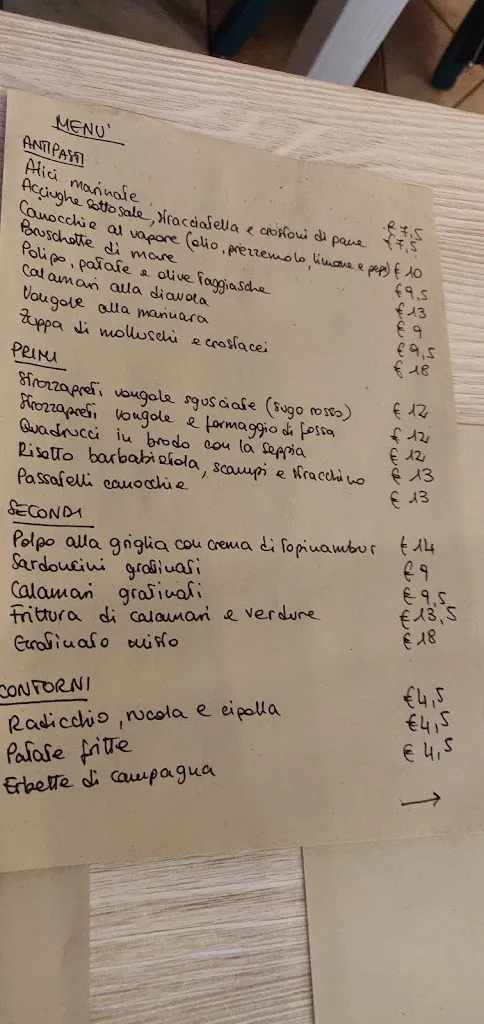 MENU'
ANTIPASTI
Alici marinate € 7,5
Acciughe sotto sale, stracciatella e crostoni di pane € 7,5
Canocchie al vapore (olio, prezzemolo, limone e pepe) € 10
Bruschette di mare € 9,5
Polipo, patate e olive taggiasche € 13
Calamari alla diavola € 9
Vongole alla marinara € 9,5
Zuppa di molluschi e crostacei € 18
PRIMI
Strozzapreti vongole sgusciate (sugo rosso) € 12
Strozzapreti vongole e formaggio di fossa € 12
Quadrucci in brodo con la seppia € 12
Risotto barbabietola, scampi e stracchino € 13
Passatelli canocchie € 13
SECONDI
Polpo alla griglia con crema di topinambur € 14
Sardoncini gratinati € 9
Calamari gratinati € 9,5
Frittura di calamari e verdure € 13,5
Gratinato misto € 18
CONTORNI
Radicchio, rucola e cipolla € 4,5
Patate fritte € 4,5
Erbette di campagna € 4,5
→